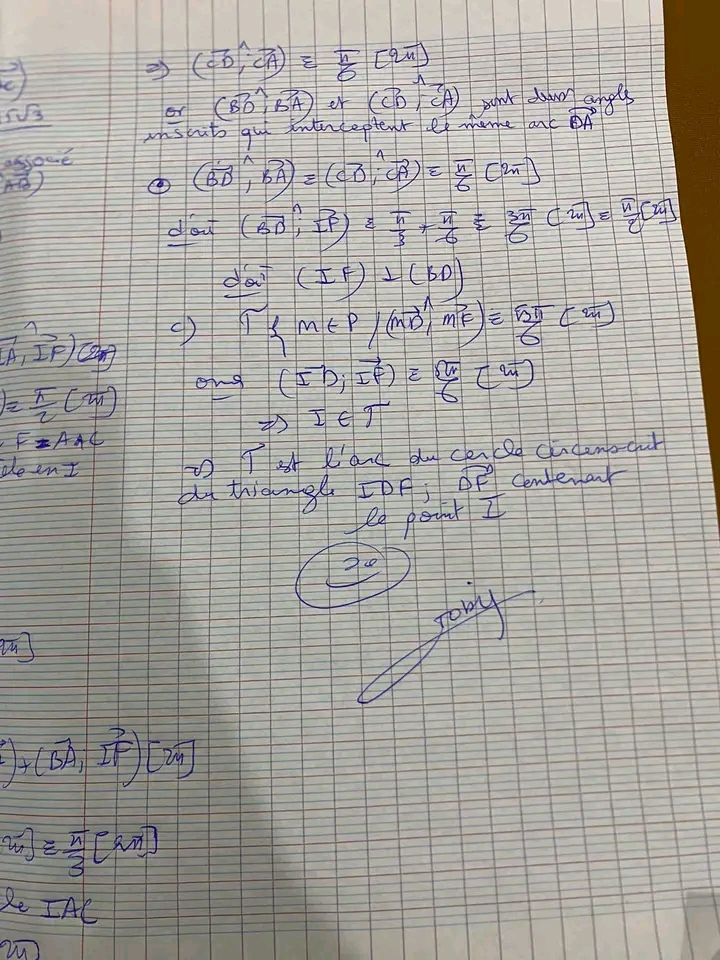 ⇒ (CD, CA) ≡ π/6 [2π]
or (BD, BA) et (CD, CA) sont deux angles
inscrits qui interceptent le même arc DA
(BD, BA) ≡ (CD, CA) ≡ π/6 [2π]
d'où (BD, IF) ≡ π/3 + π/6 ≡ 3π/6 [2π] ≡ π/2 [2π]
d'où (IF) ⊥ (BD)
c) T { M ∈ P / (MD, MF) ≡ 5π/6 [2π]
on a (ID, IF) ≡ 5π/6 [2π]
⇒ I ∈ T
⇒ T est l'arc du cercle circonscrit
du triangle IDF ; DF contenant
le point I
20
Toby
5√3
associé
AB)
IA, IF) [2π]
) ≡ π/2 [2π]
F = A * C
le en I
2π]
) + (BA, IF) [2π]
2π] ≡ π/3 [2π]
le IAC
2π]